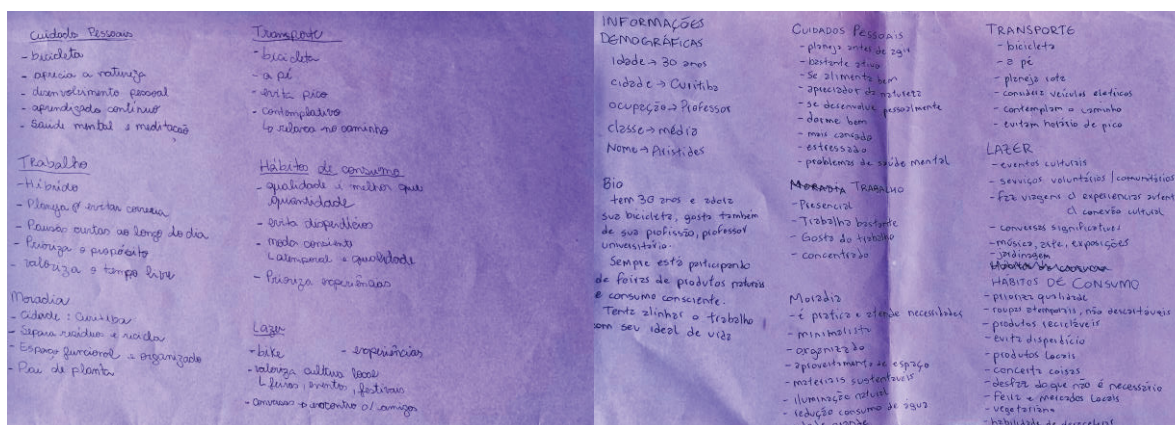 Cuidado Pessoais
- bicicleta
- aprecia a natureza
- desenvolvimento pessoal
- aprendizado contínuo
- Saúde mental e meditação
Trabalho
- Híbrido
- Planeja p/ evitar correria
- Pausas curtas ao longo do dia
- Prioriza o propósito
- valoriza o tempo livre
Moradia
- Cidade: Curitiba
- Separa resíduos e recicla
- Espaço funcional e organizado
- Pai de planta
Transporte
- bicicleta
- a pé
- evita pico
- contemplativo
↳ relaxa no caminho
Hábitos de consumo
- qualidade é melhor que
quantidade
- evita disperdícios
- moda conciente
↳ atemporal e qualidade
- Prioriza experiências
Lazer
- bike - experiências
- valoriza cultura local
↳ feiras, eventos, festivais
- conversas + encontro c/ amigos
INFORMAÇÕES
DEMOGRÁFICAS
Idade → 30 anos
cidade → Curitiba
ocupação → Professor
classe → média
Nome → Aristides
Bio
tem 30 anos e adora
sua bicicleta, gosta também
de sua profissão, professor
universitário.
Sempre está participando
de feiras de produtos naturais
e consumo consciente.
Tenta alinhar o trabalho
com seu ideal de vida
CUIDADOS PESSOAIS
- planeja antes de agir
- bastante ativo
- se alimenta bem
- apreciador da natureza
- se desenvolve pessoalmente
- dorme bem
- mais cansado
- estressado
- problemas de saúde mental
TRABALHO
- Presencial
- Trabalha bastante
- Gosta do trabalho
- concentrado
Moradia
- é pratica e atende necessidades
- minimalista
- organizado
- aproveitamento de espaço
- materiais sustentaveis
- iluminação natural
- redução consumo de água
TRANSPORTE
- bicicleta
- a pé
- planeja rota
- considera veículos eletricos
- contemplam o caminho
- evitam horário de pico
LAZER
- eventos culturais
- serviços voluntários / comunitários
- faz viagens c/ experiencias autent
c/ conexão cultural
- conversas significativas
- música, arte, exposições
- jardinagem
HABITOS DE CONSUMO
- prioriza qualidade
- roupas atemporais, não descartáveis
- produtos recicláveis
- evita disperdício
- produtos locais
- concerta coisas
- desfaz do que não é necessário
- Feira e mercados locais
- vegetariano
- habilidade de desacelerar